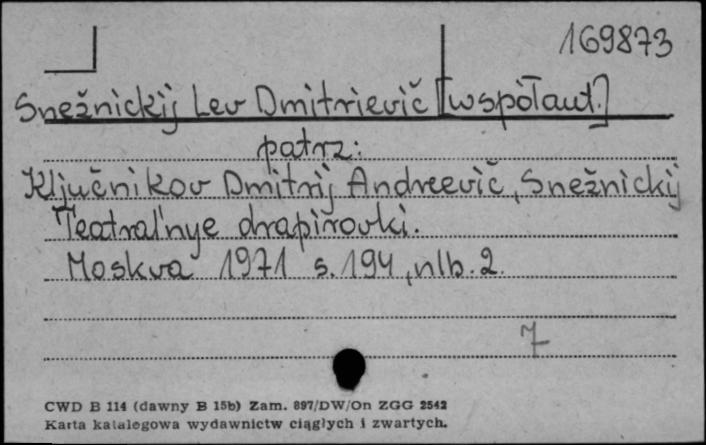 169873
Snežnickij Lev Dmitrievič [współaut.]
patrz:
Ključnikov Dmitrij Andreevič, Snežnickij
Teatral'nye drapirovki.
Moskva 1971 s. 194, nlb. 2.
7
CWD B 114 (dawny B 15b) Zam. 897/DW/On ZGG 2542
Karta katalogowa wydawnictw ciągłych i zwartych.